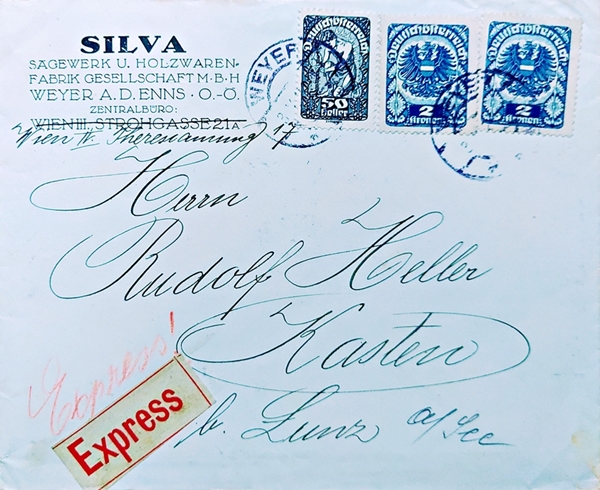 SILVA
SÄGEWERK U. HOLZWAREN-
FABRIK GESELLSCHAFT M·B·H
WEYER A.D. ENNS · O.-Ö.
ZENTRALBÜRO:
WIEN III. STROHGASSE 21A
Wien IV. 17
Deutschösterreich
50
Heller
Deutschösterreich
2
Kronen
Deutschösterreich
2
Kronen
WEYER
Herrn
Rudolf Heller
Kasten
Express!
Express
b. Lunz a/See